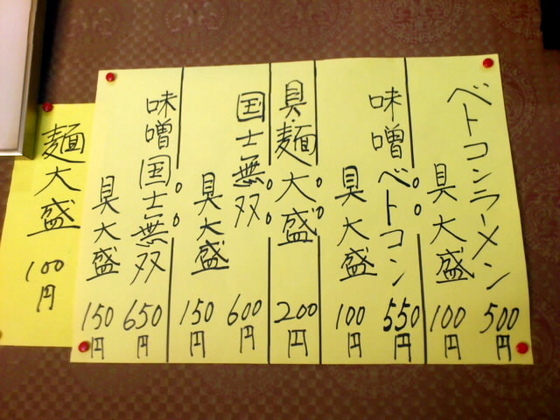 ベトコンラーメン 500円
具大盛 100円
味噌ベトコン 550円
具大盛 100円
具・麺大盛 200円
国士無双 600円
具大盛 150円
味噌国士無双 650円
具大盛 150円
麺大盛 100円